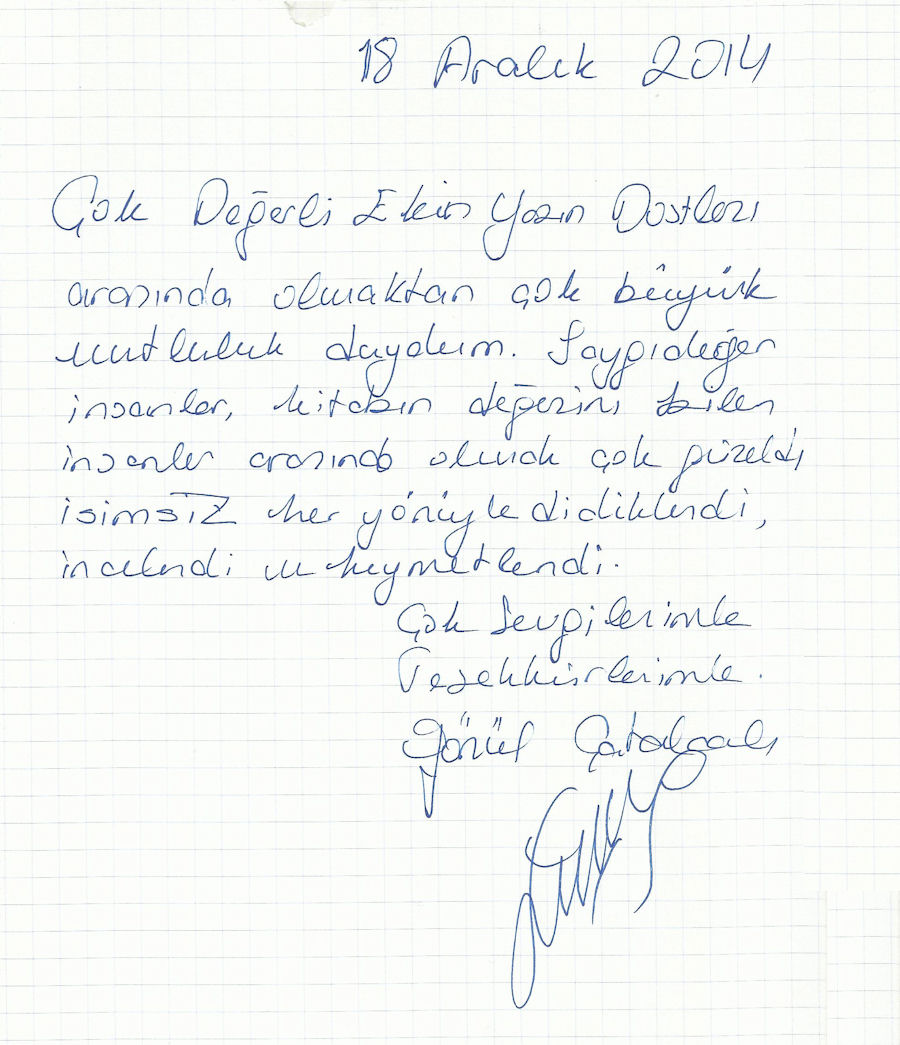 18 Aralık 2014
Çok Değerli Ekin Yazın Dostları
arasında olmaktan çok büyük
mutluluk duydum. Saygıdeğer
insanlar, kitabın değerini bilen
insanlar arasında olmak çok güzeldi
isimsiz her yönüyle didiklendi,
incelendi ve kıymetlendi.
Çok Sevgilerimle
Teşekkürlerimle.
Gönül Çatalcalı